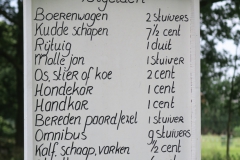 Tolgelden
Boerenwagen 2 stuivers
Kudde schapen 7½ cent
Rijtuig 1 duit
Malle jan 1 stuiver
Os, stier of koe 2 cent
Hondekar 1 cent
Handkar 1 cent
Bereden paard/ezel 1 stuiver
Omnibus 9 stuivers
Kalf, schaap, varken ½ cent